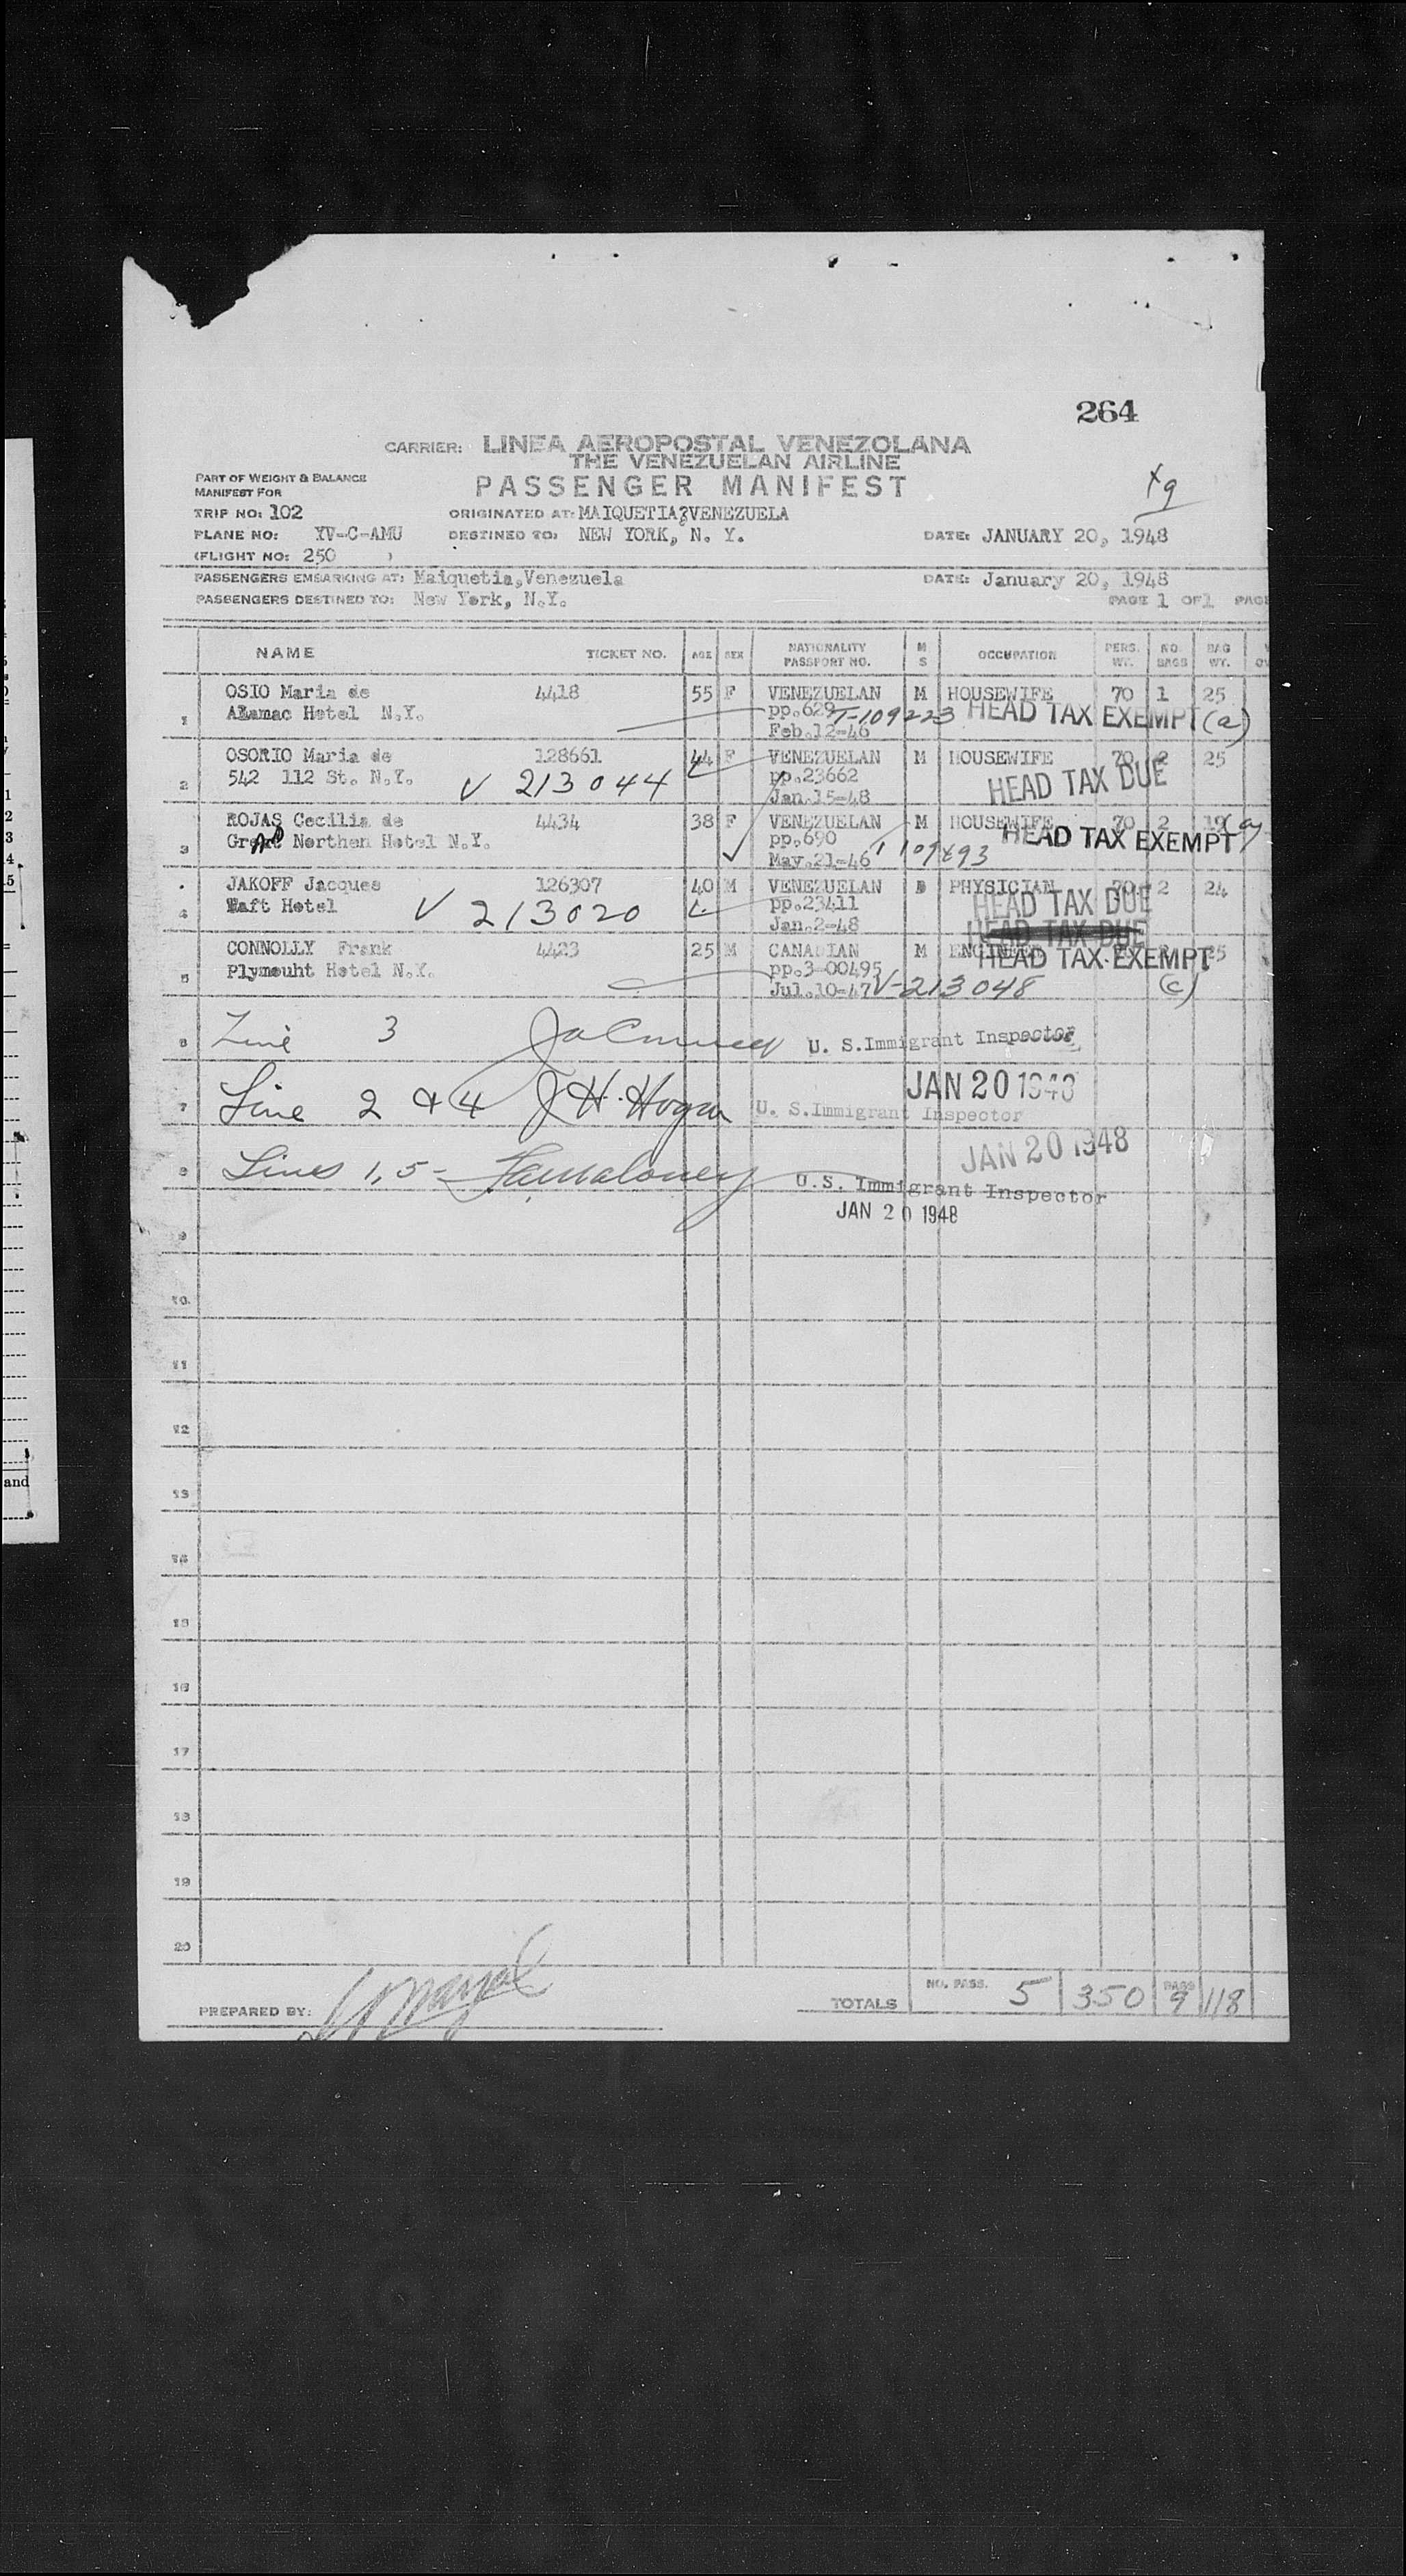 264
CARRIER: LINEA AEROPOSTAL VENEZOLANA
THE VENEZUELAN AIRLINE
PART OF WEIGHT & BALANCE
MANIFEST FOR
PASSENGER MANIFEST
TRIP NO: 102 ORIGINATED AT: MAIQUETIA, VENEZUELA
PLANE NO: YV-C-AMU DESTINED TO: NEW YORK, N. Y. DATE: JANUARY 20, 1948
(FLIGHT NO: 250 )
PASSENGERS EMBARKING AT: Maiquetia, Venezuela DATE: January 20, 1948
PASSENGERS DESTINED TO: New York, N.Y. PAGE 1 OF 1 PAG
NAME TICKET NO. AGE SEX NATIONALITY PASSPORT NO. M S OCCUPATION PERS. WT. NO. BAGS BAG WT.
1 OSIO Maria de 4418 55 F VENEZUELAN M HOUSEWIFE 70 1 25
Alamac Hotel N.Y. pp.629 T-109223 HEAD TAX EXEMPT (a)
Feb.12-46
2 OSORIO Maria de 128661 44 F VENEZUELAN M HOUSEWIFE 70 2 25
542 112 St. N.Y. V 213044 pp.23662 HEAD TAX DUE
Jan.15-48
3 ROJAS Cecilia de 4434 38 F VENEZUELAN M HOUSEWIFE 70 2 19
Northen Hotel N.Y. pp.690 HEAD TAX EXEMPT
May.21-46
4 JAKOFF Jacques 126307 40 M VENEZUELAN PHYSICIAN 70 2 24
Taft Hotel V 213020 pp.23411 HEAD TAX DUE
Jan.2-48 HEAD TAX DUE
5 CONNOLLY Frank 4423 25 M CANADIAN M 25
Plymouht Hotel N.Y. pp.3-00495 HEAD TAX EXEMPT
Jul.10-47 V-213048 (c)
6 Line 3 U. S. Immigrant Inspector
JAN 20 1948
7 Line 2 & 4 J H. Hogan U. S. Immigrant Inspector
JAN 20 1948
8 Lines 1, 5 - U.S. Immigrant Inspector
JAN 20 1948
9
10
11
12
13
14
15
16
17
18
19
20
PREPARED BY: TOTALS NO. PASS. 5 350 9 118
and